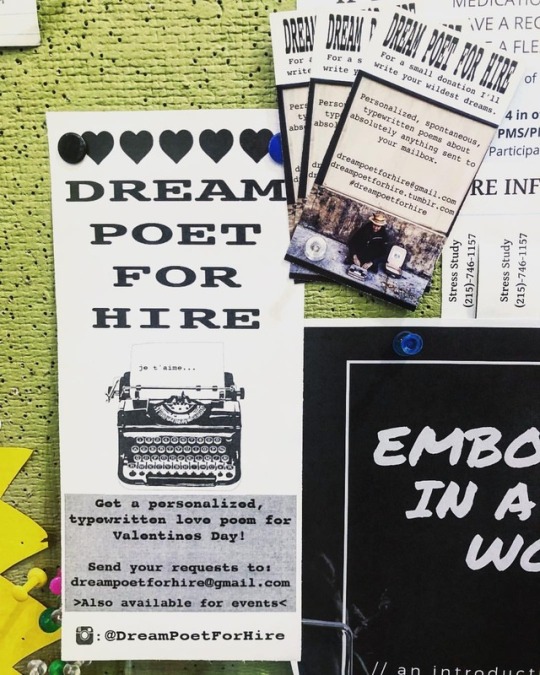 DREAM
POET
FOR
HIRE
je t'aime...
Get a personalized,
typewritten love poem for
Valentines Day!
Send your requests to:
dreampoetforhire@gmail.com
>Also available for events<
:@DreamPoetForHire
DREAM
For a
write
DREAM
For a s
write y
DREAM POET FOR HIRE
For a small donation I'll
write your wildest dreams.
Personalized, spontaneous,
typewritten poems about
absolutely anything sent to
your mailbox.
dreampoetforhire@gmail.com
dreampoetforhire.tumblr.com
#dreampoetforhire
MEDICATIO
AVE A REC
A FLE
of
4 in o
PMS/P
Participa
RE INF
Stress Study
(215)-746-1157
Stress Study
(215)-746-1157
EMBO
IN A
WO
// an introduct